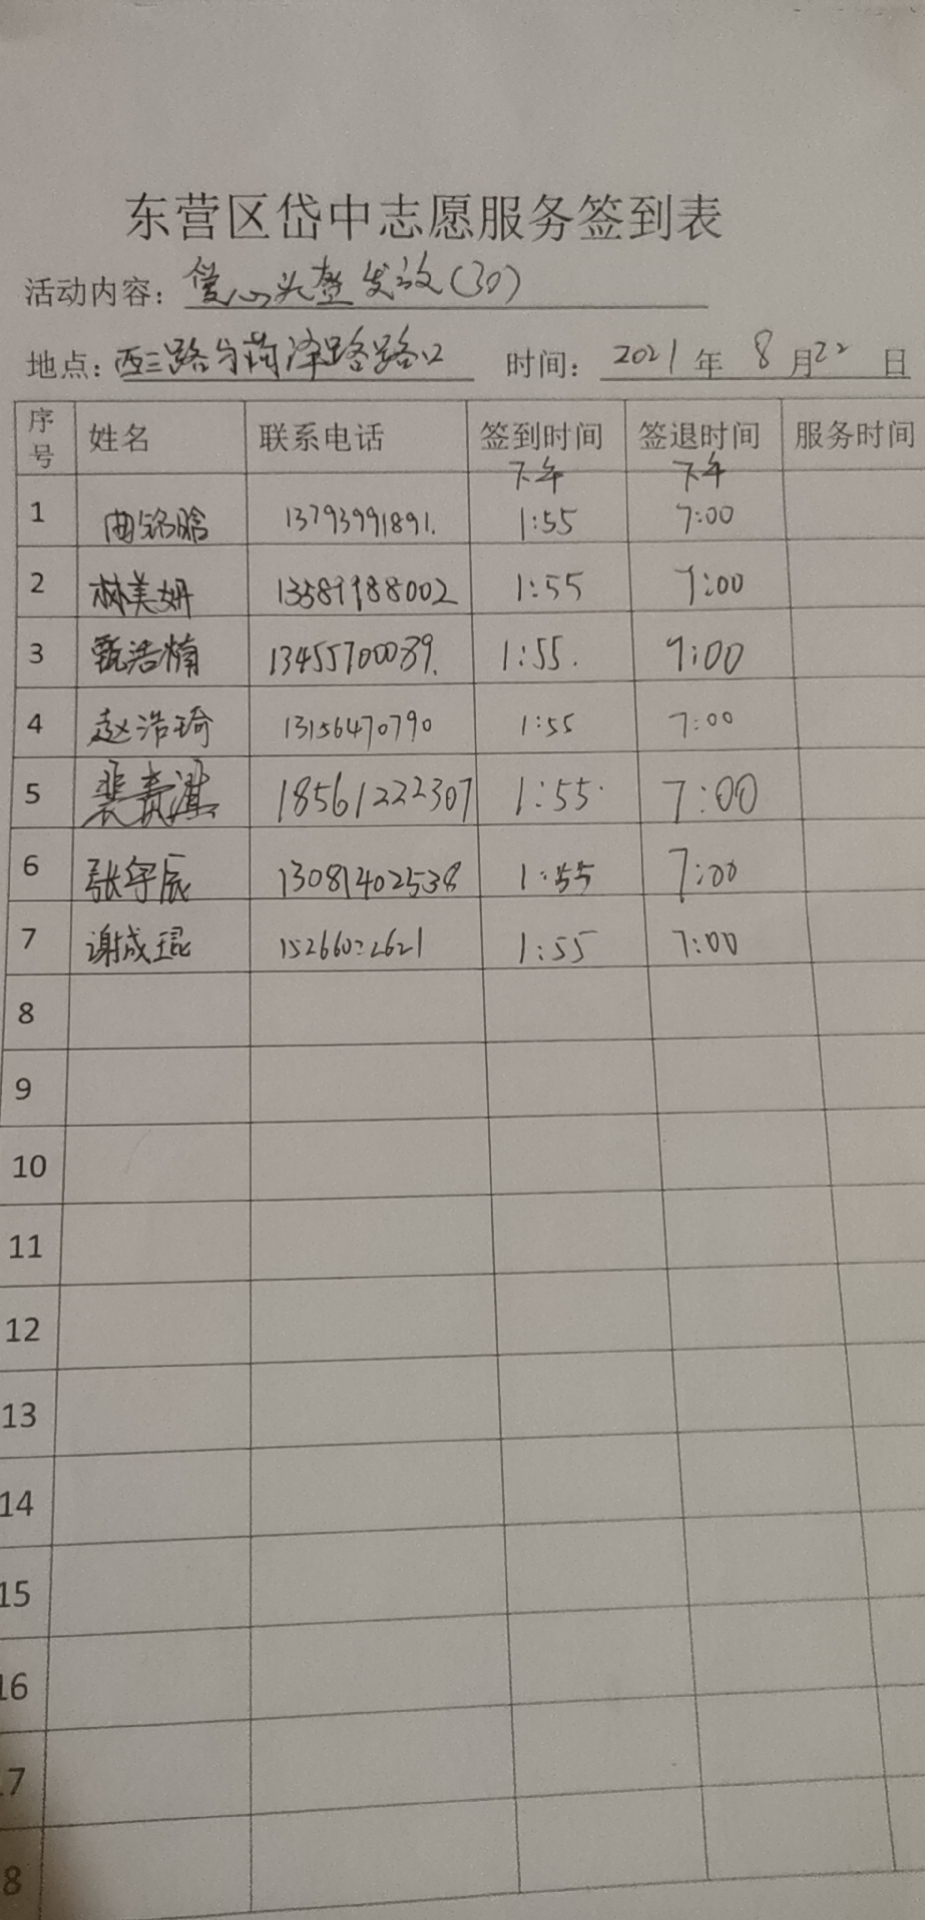 东营区岱中志愿服务签到表
活动内容：爱心头盔发放（30）
地点：西三路与菏泽路路口 时间：2021年8月22日
序号 姓名 联系电话 签到时间 签退时间 服务时间
下午 下午
1 曲铭晗 13793991891. 1:55 7:00
2 林美妍 13589988002 1:55 7:00
3 甄浩楠 13455700089. 1:55. 7:00
4 赵浩琦 13156470790 1:55 7:00
5 裴 18561222307 1:55 7:00
6 张宇辰 13081402538 1:55 7:00
7 谢成琨 1:55 7:00
8
9
10
11
12
13
14
15
16
17
8